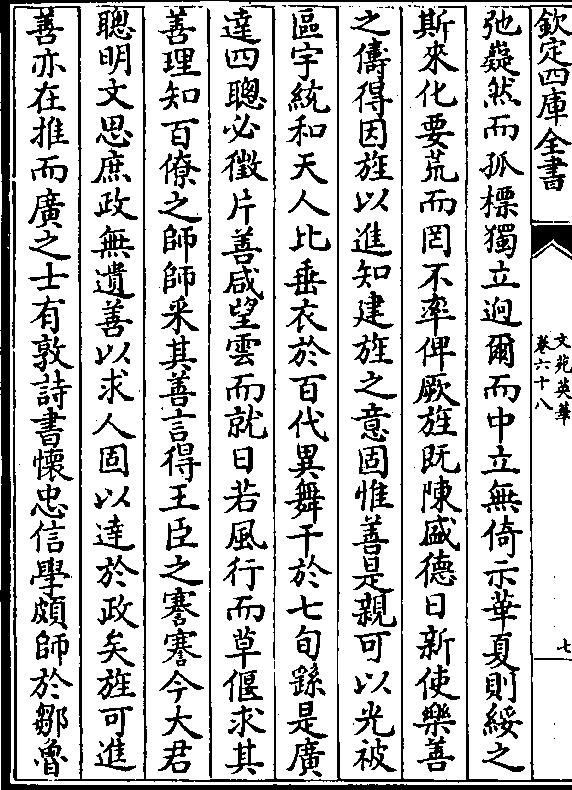 欽定四庫全書
文苑英華
卷六十八
七
弛嶷然而孤標獨立迥爾而中立無倚示華夏則綏之
斯來化要荒而罔不率俾厥旌既陳盛德日新使樂善
之儔得因旌以進知建旌之意固惟善是親可以光被
區宇統和天人比垂衣於百代異舞干於七旬繇是廣
達四聰必徵片善咸望雲而就日若風行而草偃求其
善理知百僚之師師采其善言得王臣之謇謇今大君
聰明文思庶政無遺善以求人固以達於政矣旌可進
善亦在推而廣之士有敦詩書懷忠信學頗師於鄒魯